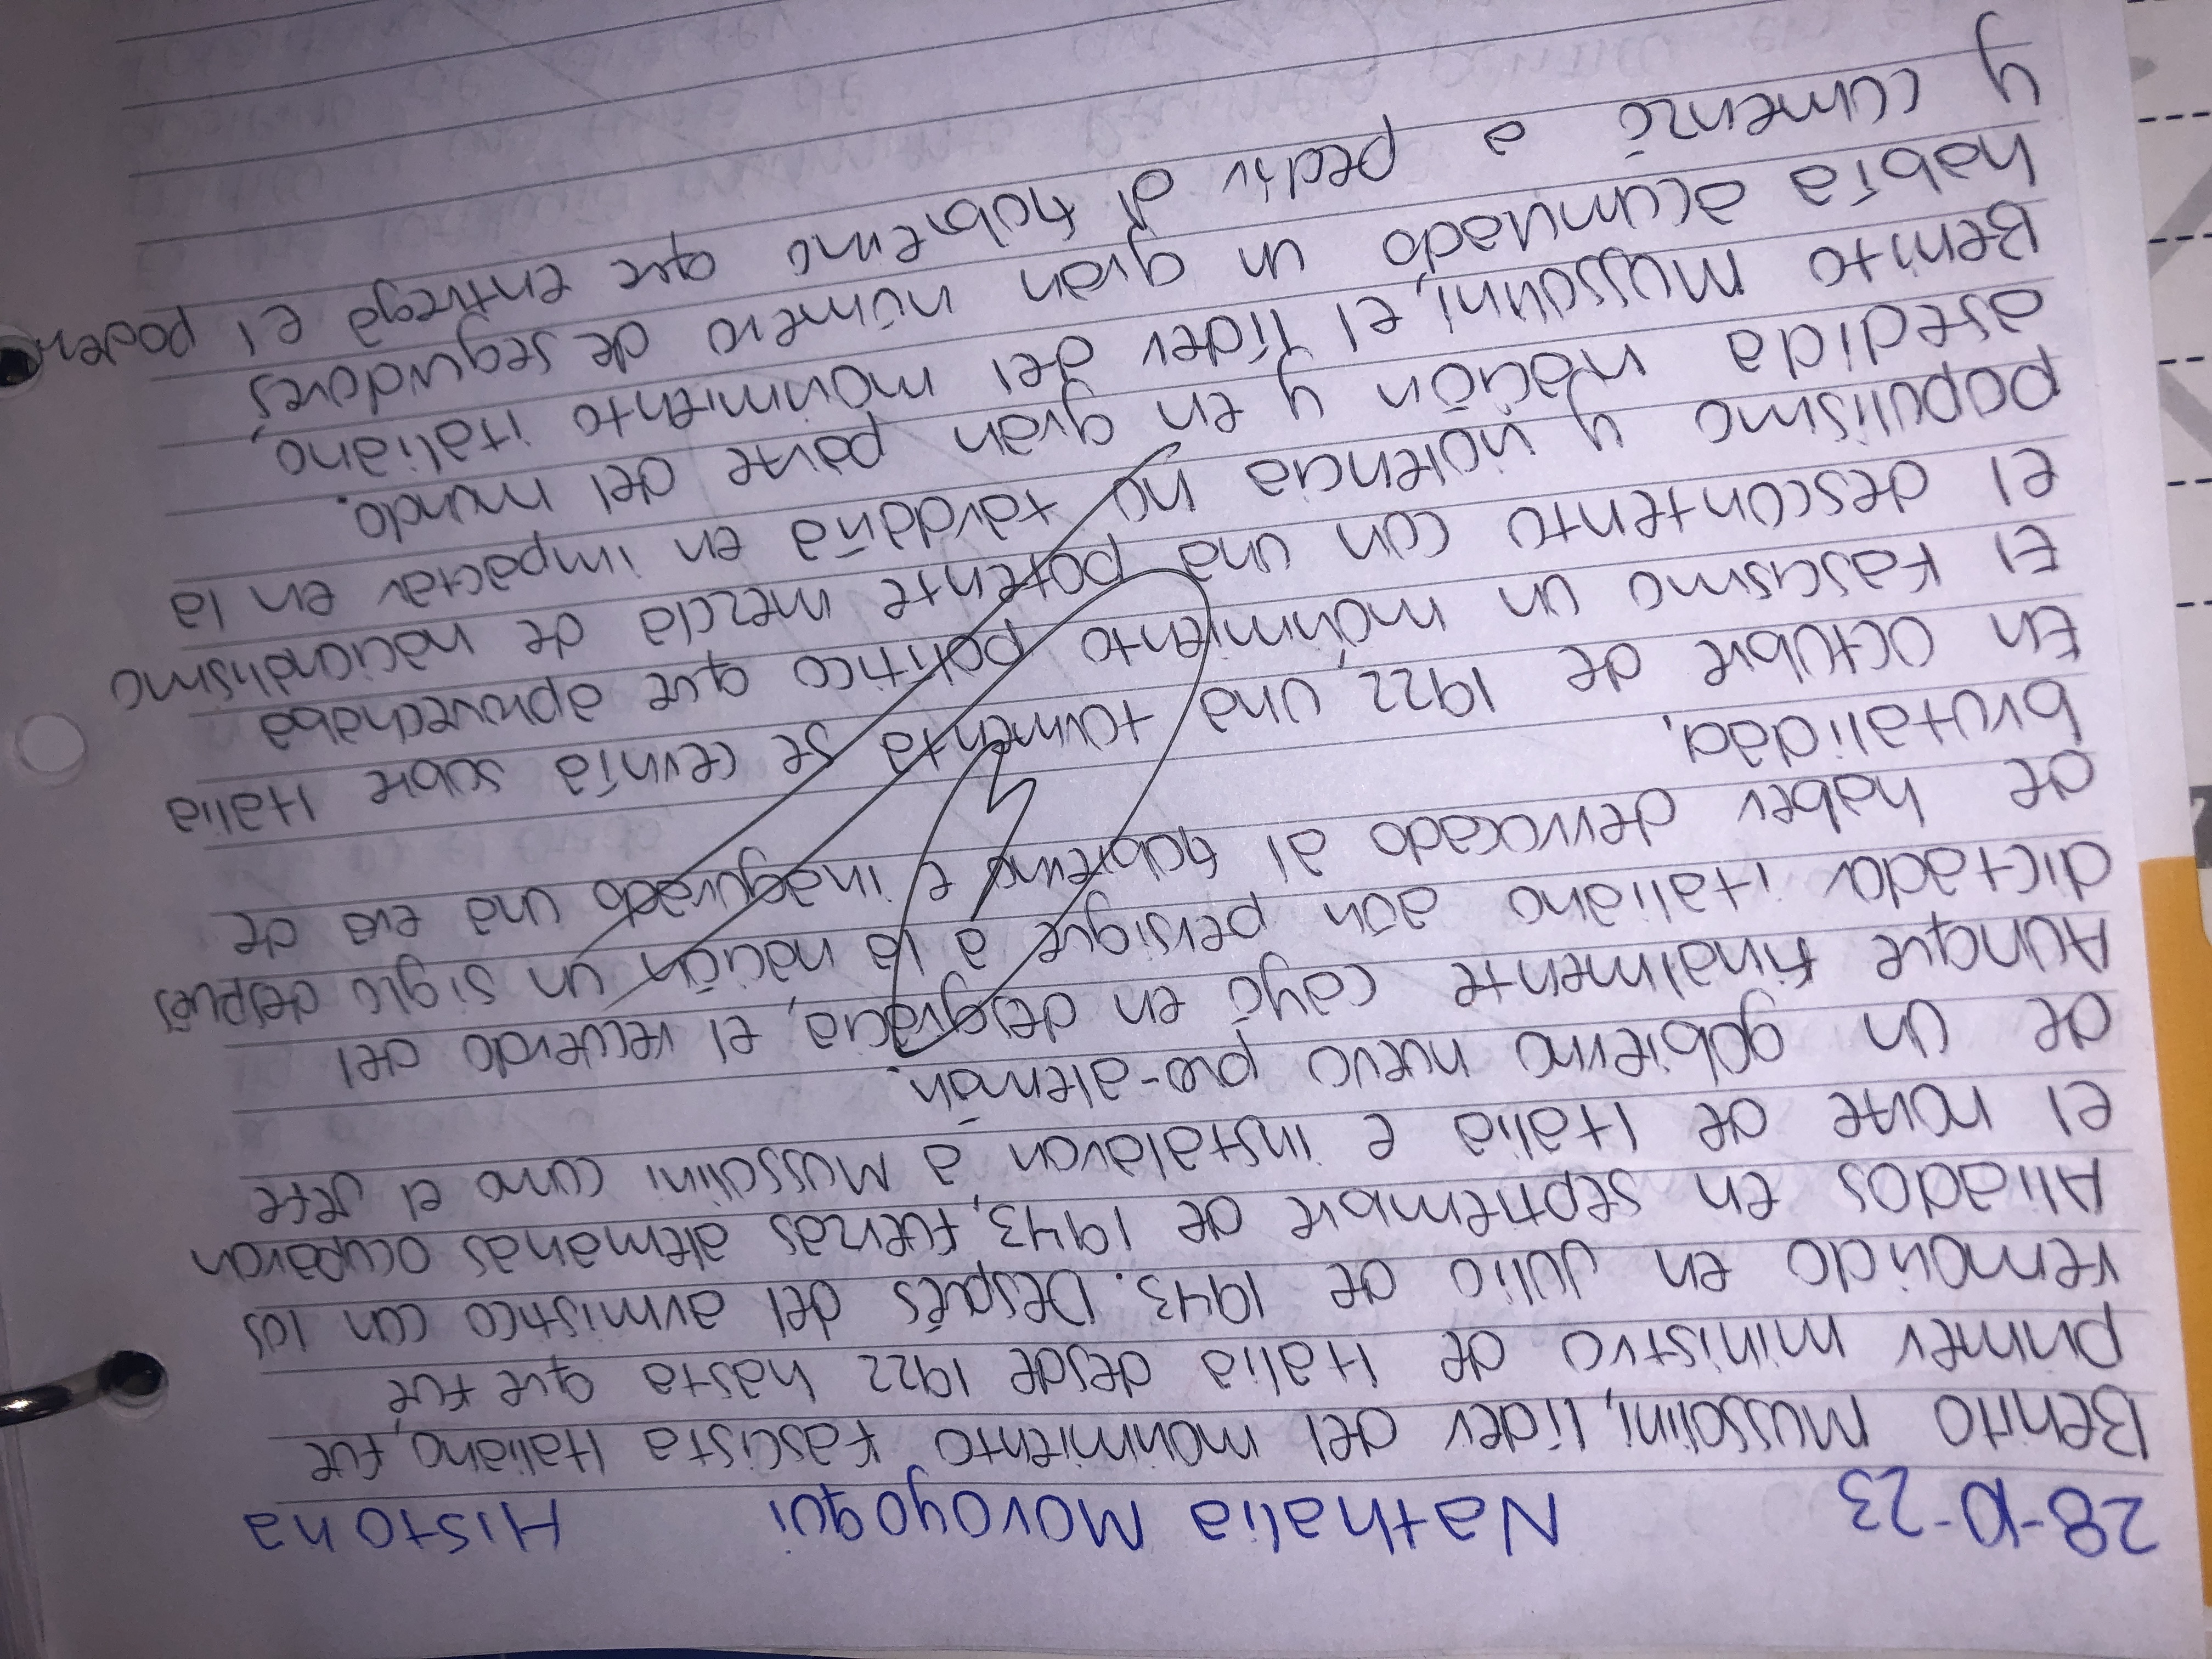 28-10-23 Nathalia Moroyoqui Historia
Benito Mussolini, líder del movimiento Fascista Italiano, fue
primer ministro de Italia desde 1922 hasta que fue
removido en Julio de 1943. Después del armistico con los
Aliados en septiembre de 1943, fuerzas alemanas ocuparon
el norte de Italia e instalaron a Mussolini como el jefe
de un gobierno nuevo pro-alemán.
Aunque finalmente cayó en desgracia, el recuerdo del
dictador italiano aún persigue a la nación un siglo después
de haber derrocado al gobierno e inagurado una era de
brutalidad.
En octubre de 1922 una tormenta se cernía sobre Italia
El Fascismo un movimiento político que aprovechaba
el descontento con una potente mezcla de nacionalismo
populismo y violencia no tardaría en impactar en la
asedida nación y en gran parte del mundo.
Benito Mussolini, el líder del movimiento italiano,
había acumulado un gran número de seguidores,
y comenzó a pedir al gobierno que entrega el poder